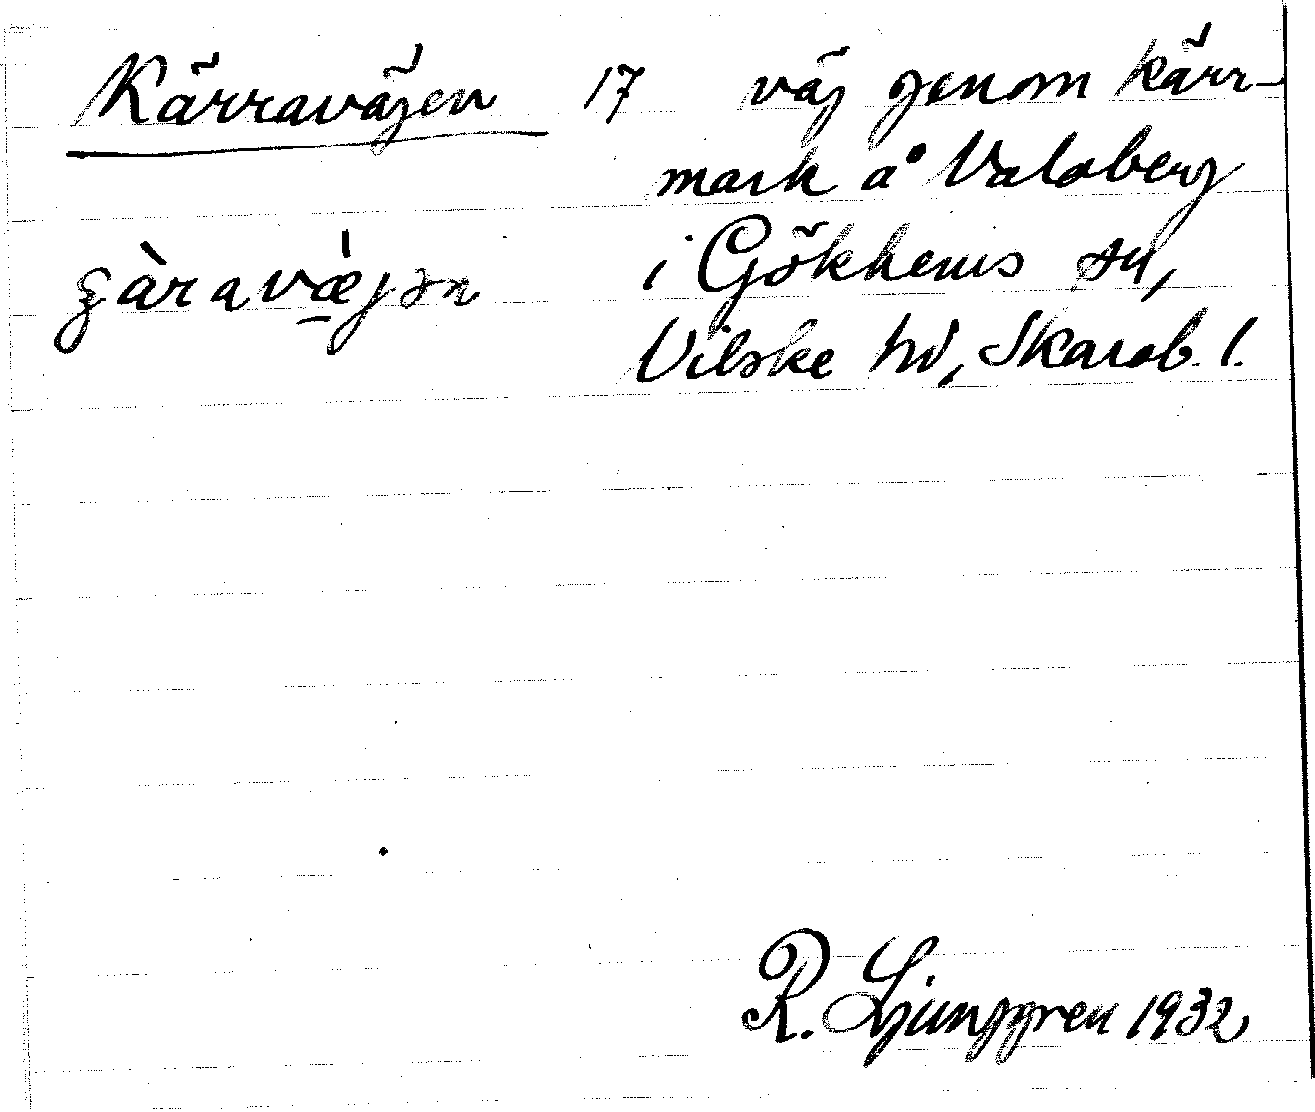 Kärravägen 17 väg genom kärr-
mark å Valaberg
i Gökhems sn,
Vilske hd, Skarab. l.
R. Ljunggren 1932